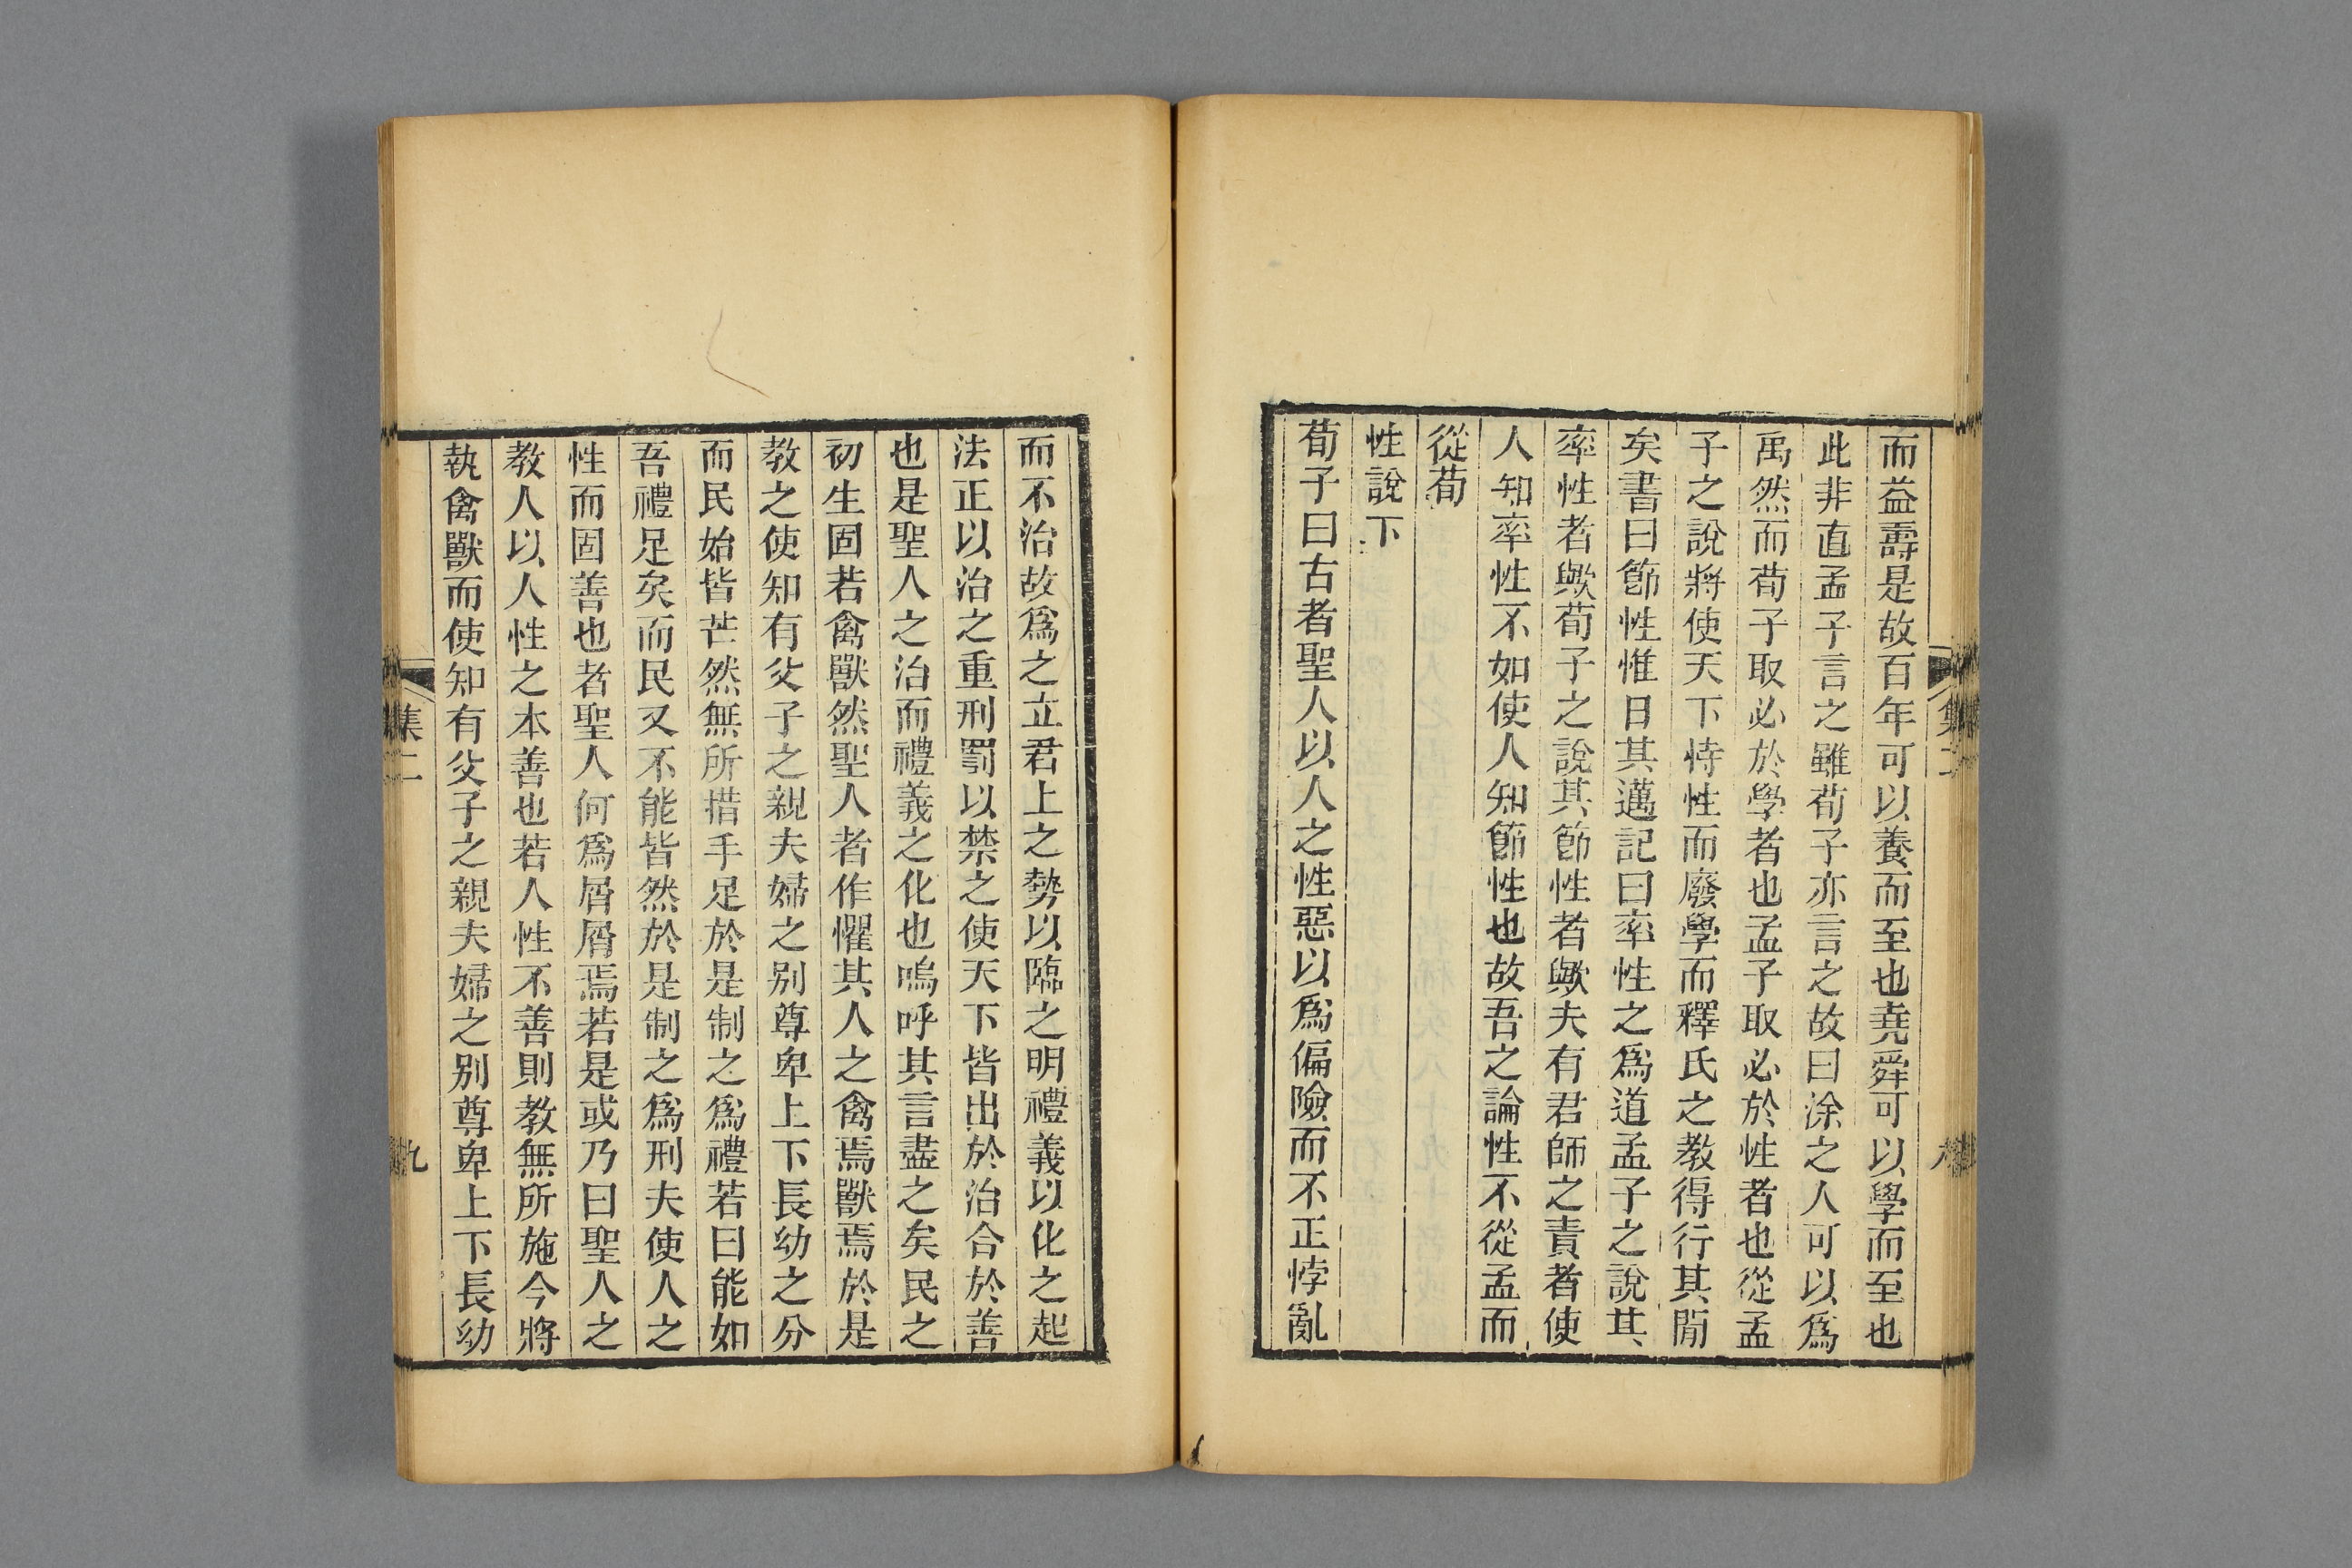 而益壽是故百年可以養而至也堯舜可以學而至也
此非直孟子言之雖荀子亦言之故曰涂之人可以爲
禹然而荀子取必於學者也孟子取必於性者也從孟
子之說將使天下恃性而廢學而釋氏之教得行其閒
矣書曰節性惟日其邁記曰率性之爲道孟子之說其
率性者歟荀子之說其節性者歟夫有君師之責者使
人知率性不如使人知節性也故吾之論性不從孟而
從荀
性說下
荀子曰古者聖人以人之性惡以爲偏險而不正悖亂
而不治故爲之立君上之勢以臨之明禮義以化之起
法正以治之重刑罰以禁之使天下皆出於治合於善
也是聖人之治而禮義之化也嗚呼其言盡之矣民之
初生固若禽獸然聖人者作懼其人之禽焉獸焉於是
教之使知有父子之親夫婦之别尊卑上下長幼之分
而民始皆芒然無所措手足於是制之爲禮若曰能如
吾禮足矣而民又不能皆然於是制之爲刑夫使人之
性而固善也者聖人何爲屑屑焉若是或乃曰聖人之
教人以人性之本善也若人性不善則教無所施今將
執禽獸而使知有父子之親夫婦之别尊卑上下長幼
集二
九